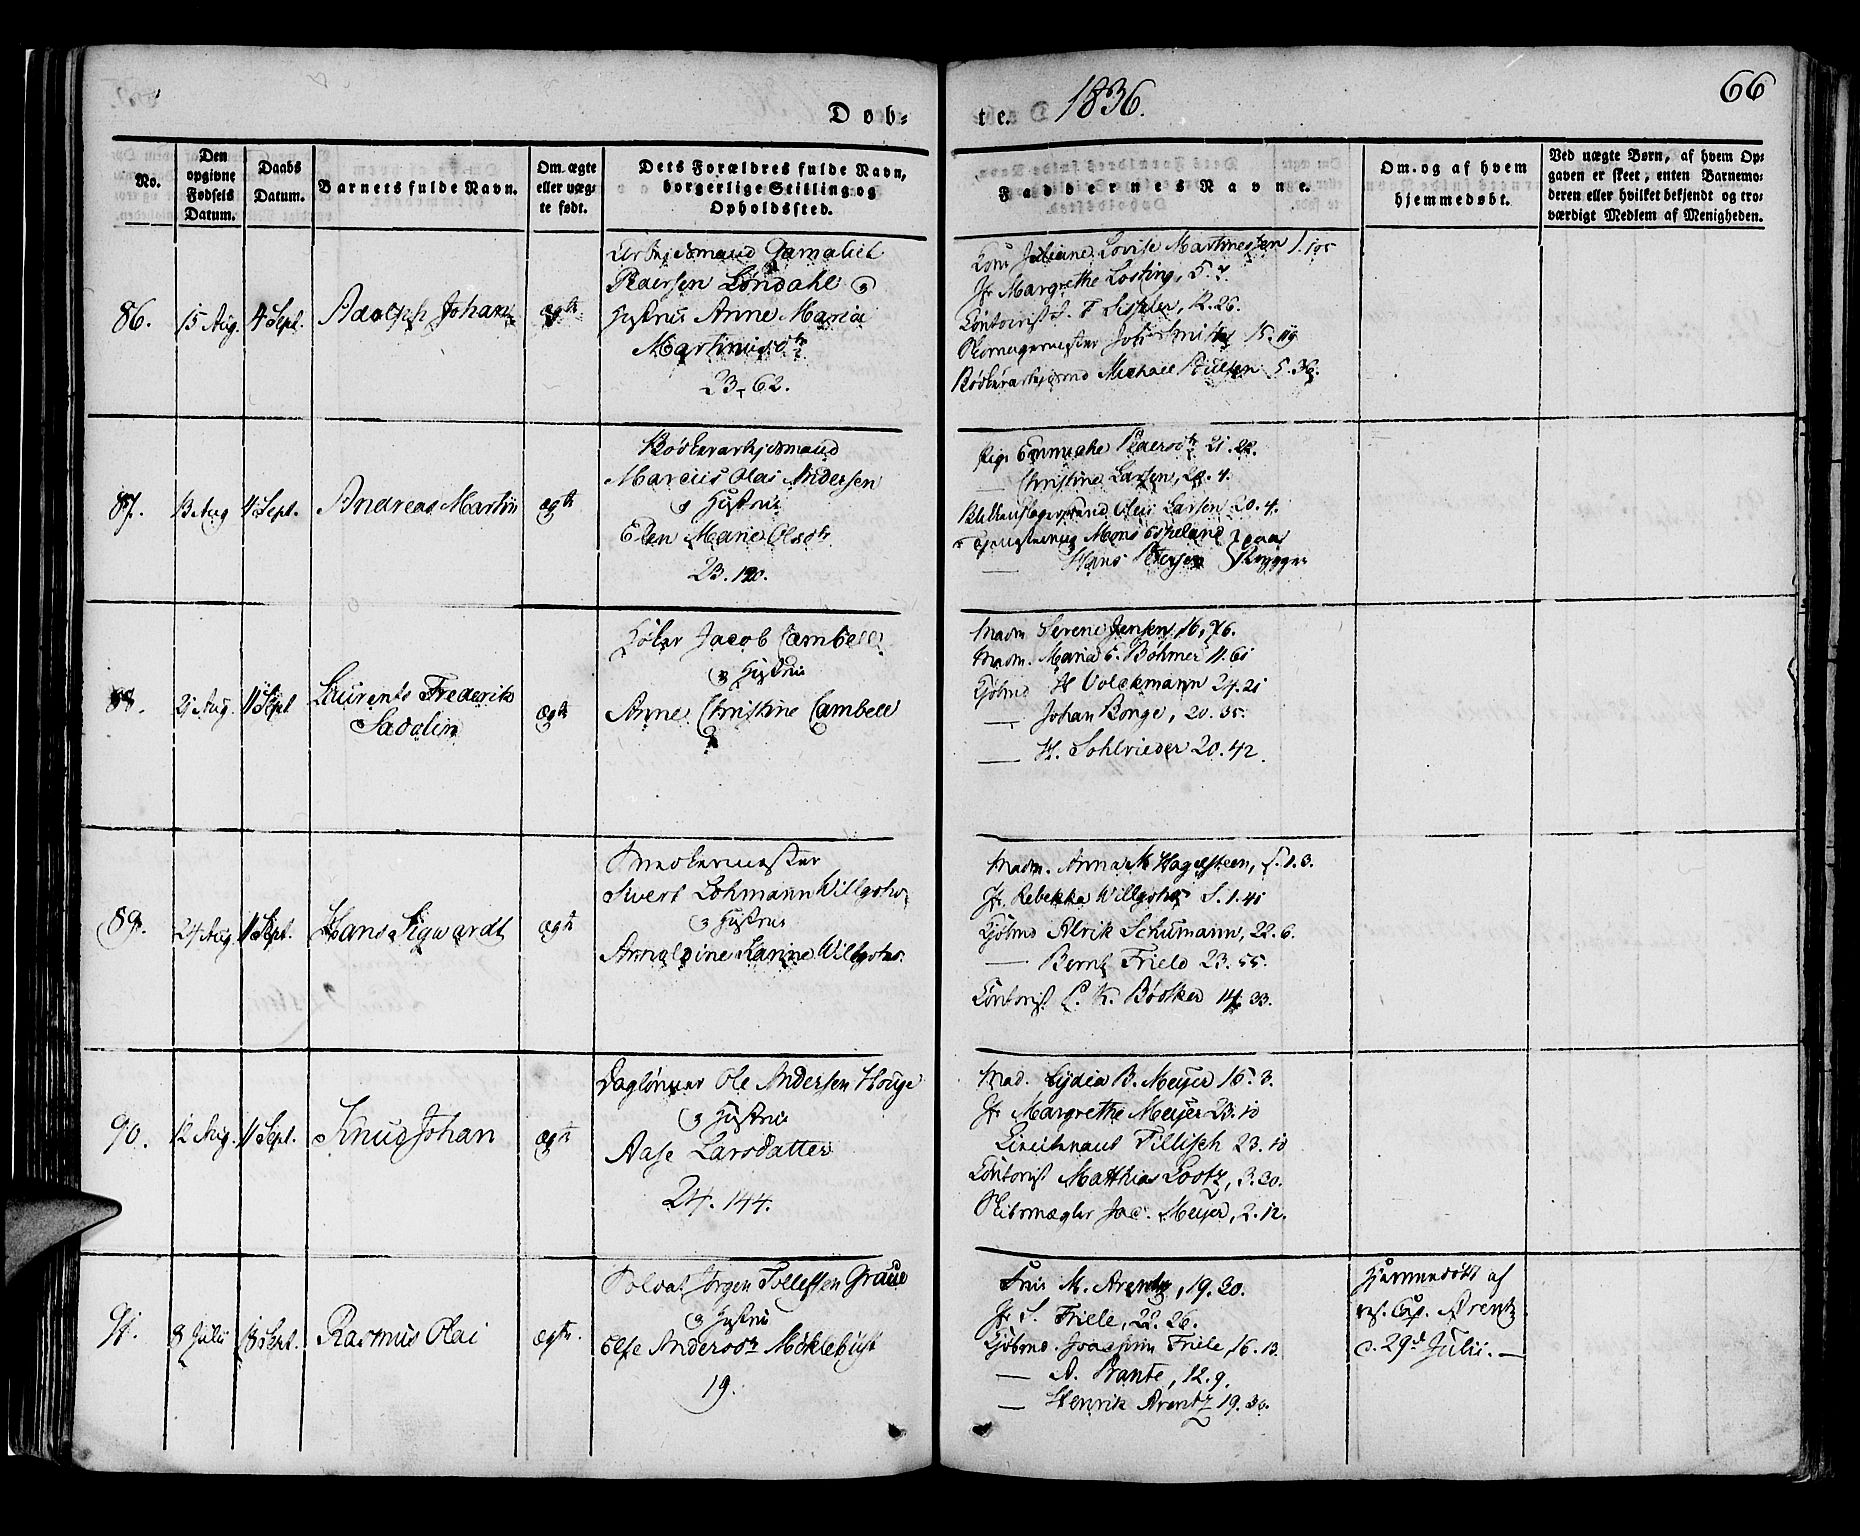 66
Døb-
te. 1836.
No.
Den opgivne Fødsels Datum.
Daabs Datum.
Barnets fulde Navn.
Om ægte eller uægte født.
Dets Forældres fulde Navn, borgerlige Stilling og Opholdssted.
Faddernes Navne.
Om og af hvem hjemmedøbt.
Ved uægte Børn, af hvem Opgaven er skeet, enten Barnemoderen eller hvilket bekjendt og troværdigt Medlem af Menigheden.
86.
15 Aug.
4 Sept.
Adolph Johan
ægte
Arbeidsmand Gamaliel
Pedersen Løndahl og
Hustrue Anne Maria
23-62.
Kone Juliane Lovise Martinessen
Jfr Margrethe Losting, 5.
Contorist 12.26.
Skorneigermester Smith 15.119
Bødkerarbejdsmd Michael 5.36.
87.
13 Aug
4 Sept.
Andreas Martin
ægte
Bødkerarbejdsmand
Marcus Olai Andersen
og Hustrue
Elen Marie Olsdtr
23.120.
Pige Pedersdtr 21.22.
— Christine Larsen, 20.4.
Larsen 20.4.
Mons Espeland paa
— Hans Petersen Bryggen
88.
21 Aug.
11 Sept
Laurents Frederik
Sadolin
ægte
Høker Jacob Cambell
og Hustrue
Anne Christine Cambell
Madm Serene Jensen, 16.76.
Madm. Maria E. Bøhmer 11.61
Kjøbmd H Volckmann 24.21
— Johan Bonge, 20.35.
— H. Sohlvieder 20.42.
89.
24 Aug.
11 Sept.
Hans Sigwardt
ægte
Snedkermester
Sivert Lohmann Willgohs
og Hustrue
Arnoldine Karine Willgohs.
Madm. Anna M Hagelsteen, S.1.3.
Jfr. Rebekka Willgohs S.1.41
Kjøbmd Alrik Schumann, 22.6.
— Bernt Friele 23.55.
Contorist C. K. Bødtker 14.33.
90.
12 Aug.
11 Sept.
Knud Johan
ægte
Daglønner Ole Andersen Houge
og Hustrue
Aase Larsdatter
24.144.
Mad. Lydia B. Meyer 16.3.
Jfr Margrethe Meyer 23.10
Lieutenant Tillisch 23.10
Contorist Matthias Lootz, 3.30.
Skibsmægler Jac. Meyer, 2.12.
91.
8 Julii
18 Sept.
Rasmus Olai
ægte.
Soldat Jørgen Tollefsen Graue
og Hustrue
Else Andersdtr Møklebust
19.
Frue M. Arentz, 19.30.
Jfr S. Friele, 22.26.
Kjøbmd. Joachim Friele, 16.13.
— A. Brante, 12.9.
— Henrik Arentz 19.30.
Hjemmedøbt af
res. Cap. Arentz
d. 29d Julii.—